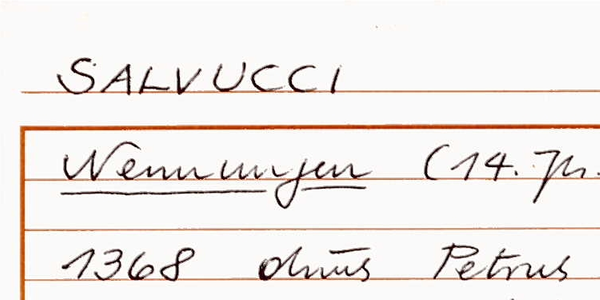 SALVUCCI
Nennungen (14. Jh.
1368 dnūs Petrus